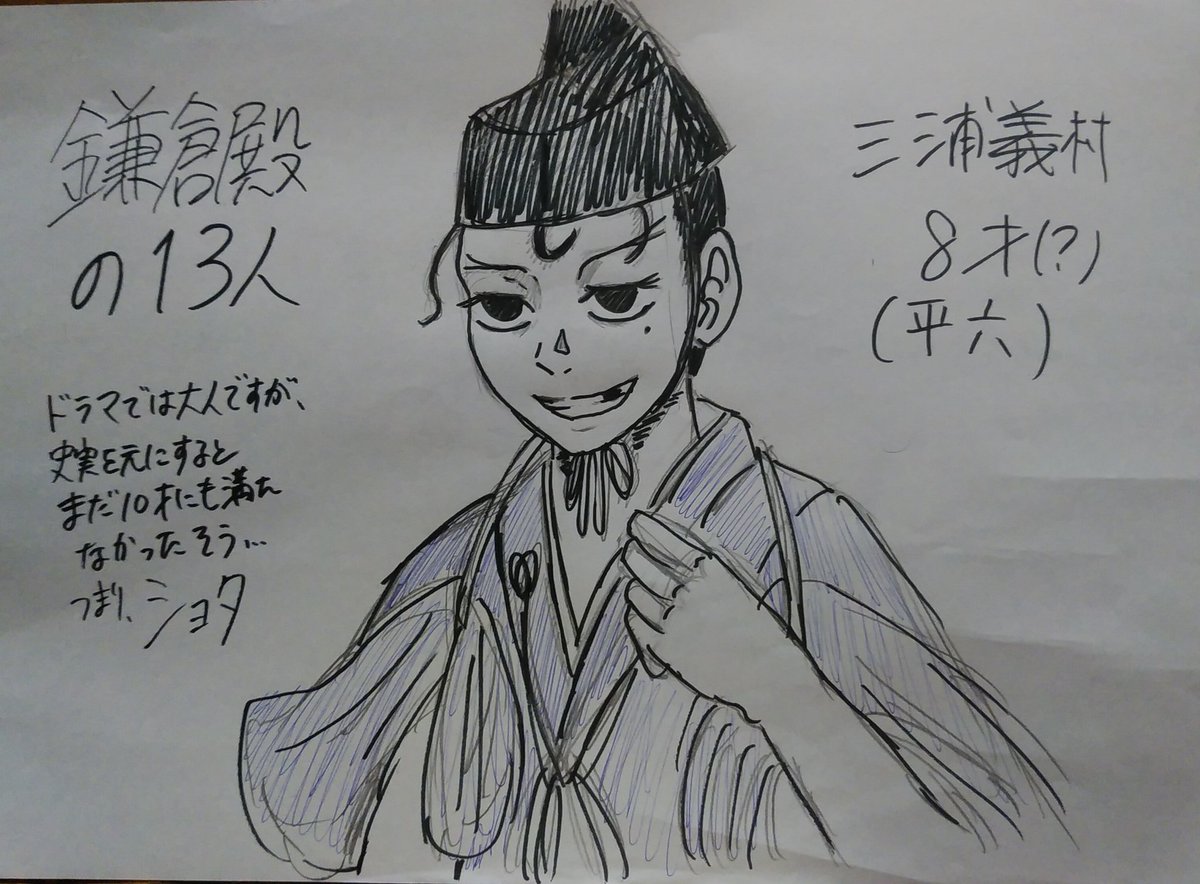 鎌倉殿
の13人
ドラマでは大人ですが、
史実を元にすると
まだ10才にも満た
なかったそう…
つまり、ショタ
三浦義村
8才(?)
(平六)